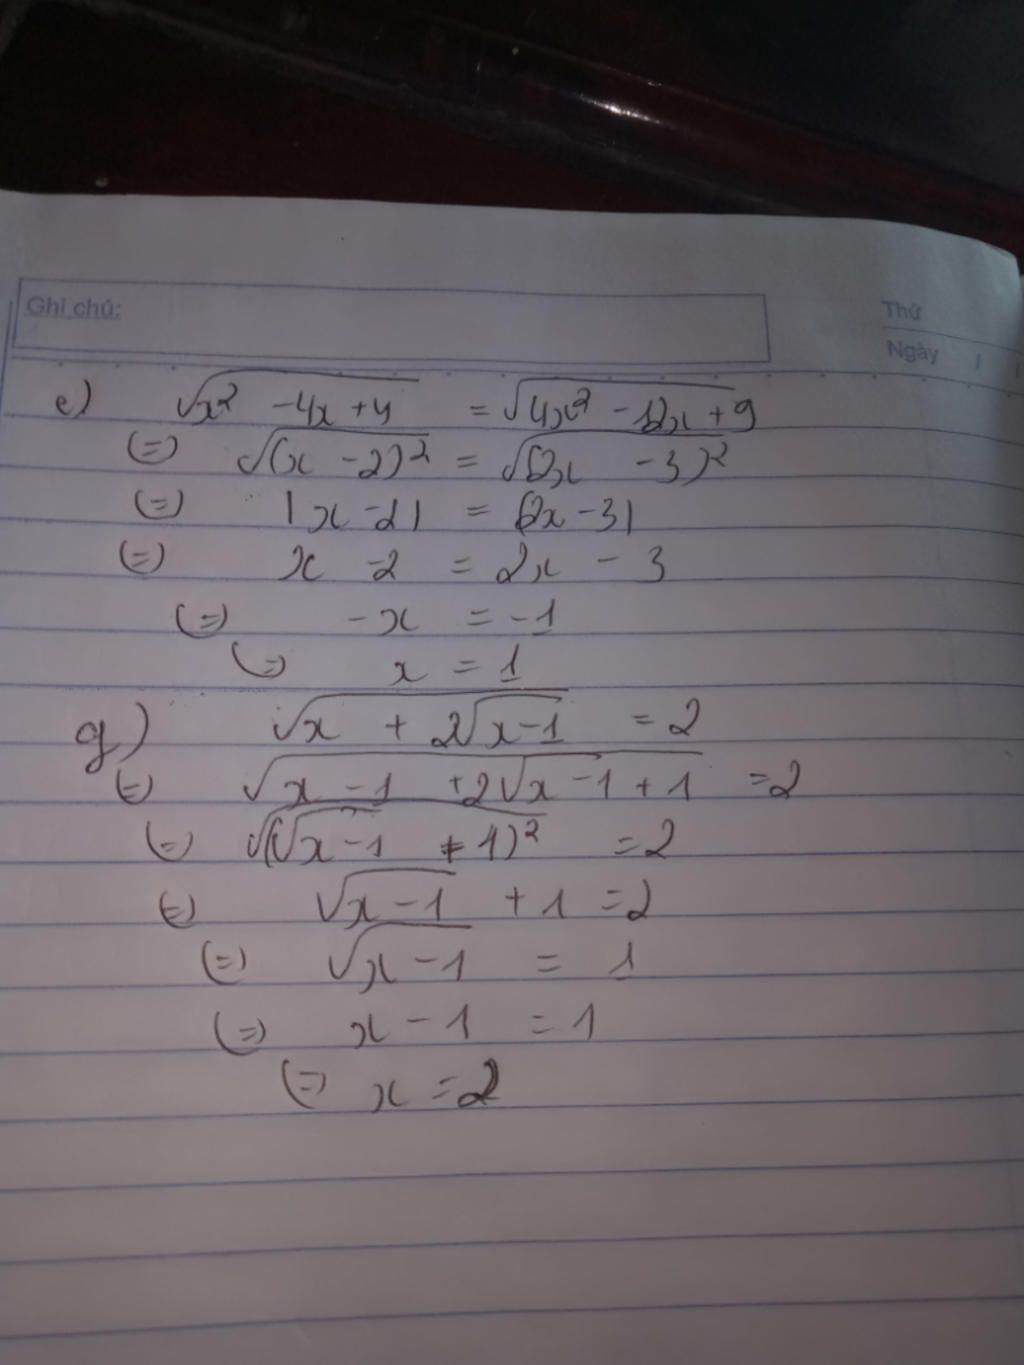 Ghi chú:
Thứ
Ngày / /
e) √(x² - 4x + 4) = √(4x² - 12x + 9)
(=) √((x - 2)²) = √((2x - 3)²)
(=) |x - 2| = |2x - 3|
(=) x - 2 = 2x - 3
(=) -x = -1
(=) x = 1
g) √(x + 2√(x-1)) = 2
(=) √(x - 1 + 2√(x-1) + 1) = 2
(=) √((√(x-1) + 1)²) = 2
(=) √(x-1) + 1 = 2
(=) √(x-1) = 1
(=) x - 1 = 1
(=) x = 2